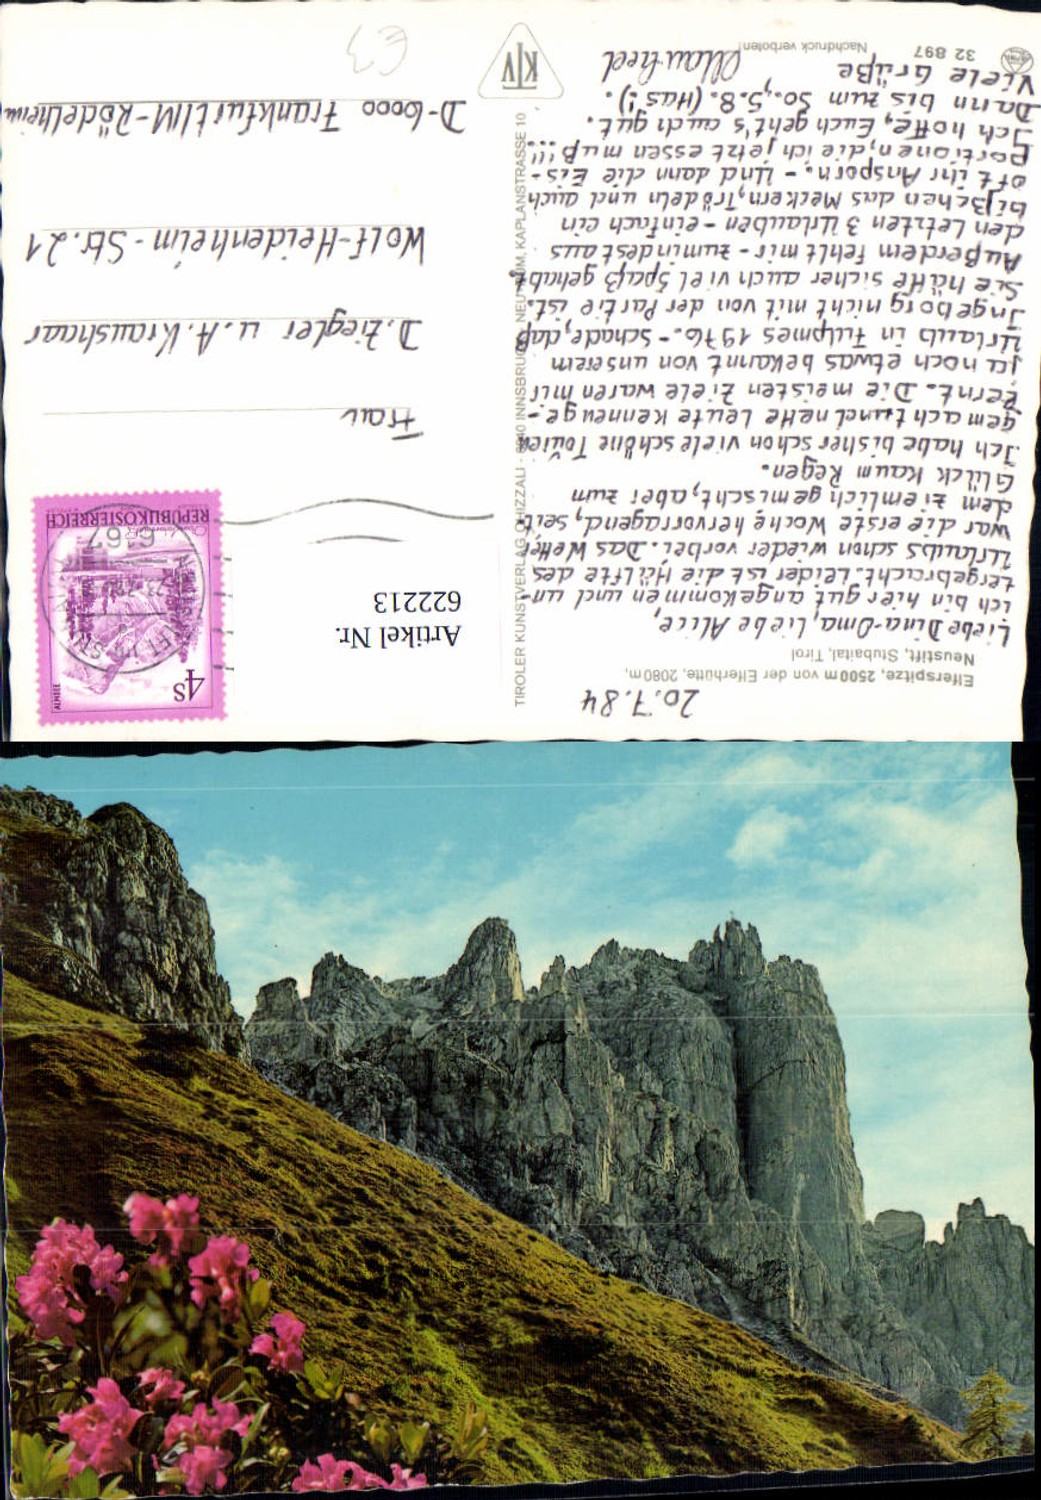 20.7.84
Elferspitze, 2500m von der Elferhütte, 2080m,
Neustift, Stubaital, Tirol
Liebe Dina-Oma, liebe Alice,
ich bin hier gut angekommen und un-
tergebracht. Leider ist die Hälfte des
Urlaubs schon wieder vorbei. Das Wetter
war die erste Woche hervorragend, seit-
dem ziemlich gemischt, aber zum
Glück kaum Regen.
Ich habe bisher schon viele schöne Touren
gemacht und nette Leute kennenge-
lernt. Die meisten Ziele waren mir
ja noch etwas bekannt von unserem
Urlaub in Fulpmes 1976. - Schade, daß
Ingeborg nicht mit von der Partie ist.
Sie hätte sicher auch viel Spaß gehabt.
Außerdem fehlt mir - zumindest aus
den letzten 3 Urlauben - einfach ein
bißchen das Meckern, Trödeln und auch
oft ihr Ansporn. - Und dann die Eis-
portionen, die ich jetzt essen muß!!!
Ich hoffe, Euch geht's auch gut.
Dann bis zum So., 5.8. (Has!).
Viele Grüße
Manfred
32 897
Nachdruck verboten!
TIROLER KUNSTVERLAG CHIZZALI · 6040 INNSBRUCK-NEU-RUM, KAPLANSTRASSE 10
KTV
4S
ALMSEE
REPUBLIK ÖSTERREICH
6167
Artikel Nr.
622213
Frau
D. Ziegler u. A. Kraushaar
Wolf-Heidenheim-Str. 21
D-6000 Frankfurt/M-Rödelheim
€3